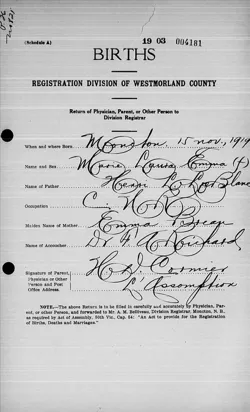 (Schedule A)
19 03 004181
BIRTHS
REGISTRATION DIVISION OF WESTMORLAND COUNTY
Return of Physician, Parent, or Other Person to
Division Registrar
When and where Born, Moncton, 15 nov, 1919
Name and Sex, Marie Laura Emma (f)
Name of Father Henri L. LeBlanc
Occupation C. N. R.
Maiden Name of Mother, Emma
Name of Accoucher, Dr. Richard
Signature of Parent,
Physician or Other
Person and Post
Office Address
H. D. Cormier
L'Assomption
NOTE.—The above Return is to be filled in carefully and accurately by Physician, Parent,
or other Person, and forwarded to Mr. A. M. Belliveau, Division Registrar, Moncton, N. B.,
as required by Act of Assembly, 50th Vic., Cap. 54: "An Act to provide for the Registration
of Births, Deaths and Marriages."